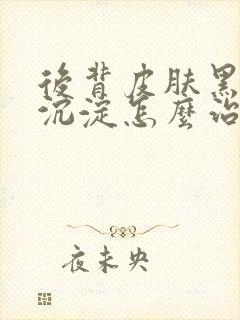 後背皮肤黑
沉淀怎麼治
夜未央